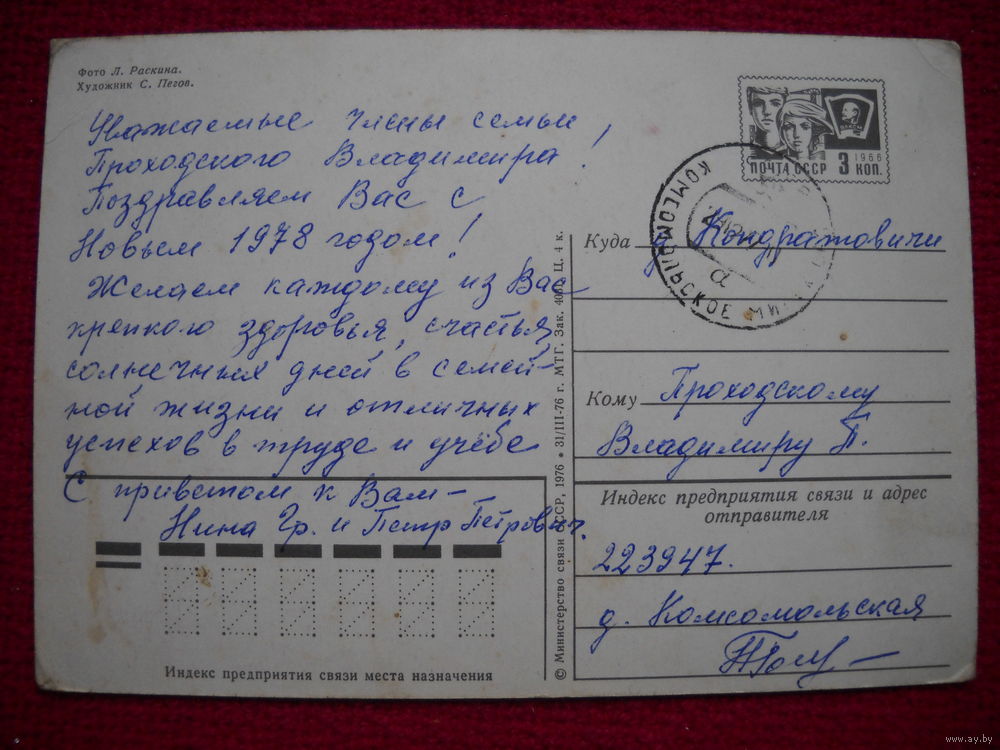 Фото Л. Раскина.
Художник С. Пегов.
Уважаемые члены семьи
Проходского Владимира!
Поздравляем Вас с
Новым 1978 годом!
Желаем каждому из Вас
крепкого здоровья, счастья,
солнечных дней в семей-
ной жизни и отличных
успехов в труде и учёбе
С приветом к Вам –
Нина Гр. и Петр Петрович.
Индекс предприятия связи места назначения
© Министерство связи СССР, 1976 • 31/III-76 г. МТГ. Зак. Ц. 4 к.
1966
ПОЧТА СССР 3 КОП.
Куда д. Кондратовичи
Кому Проходскому
Владимиру П.
Индекс предприятия связи и адрес
отправителя
223947.
д. Комсомольская
www.ay.by